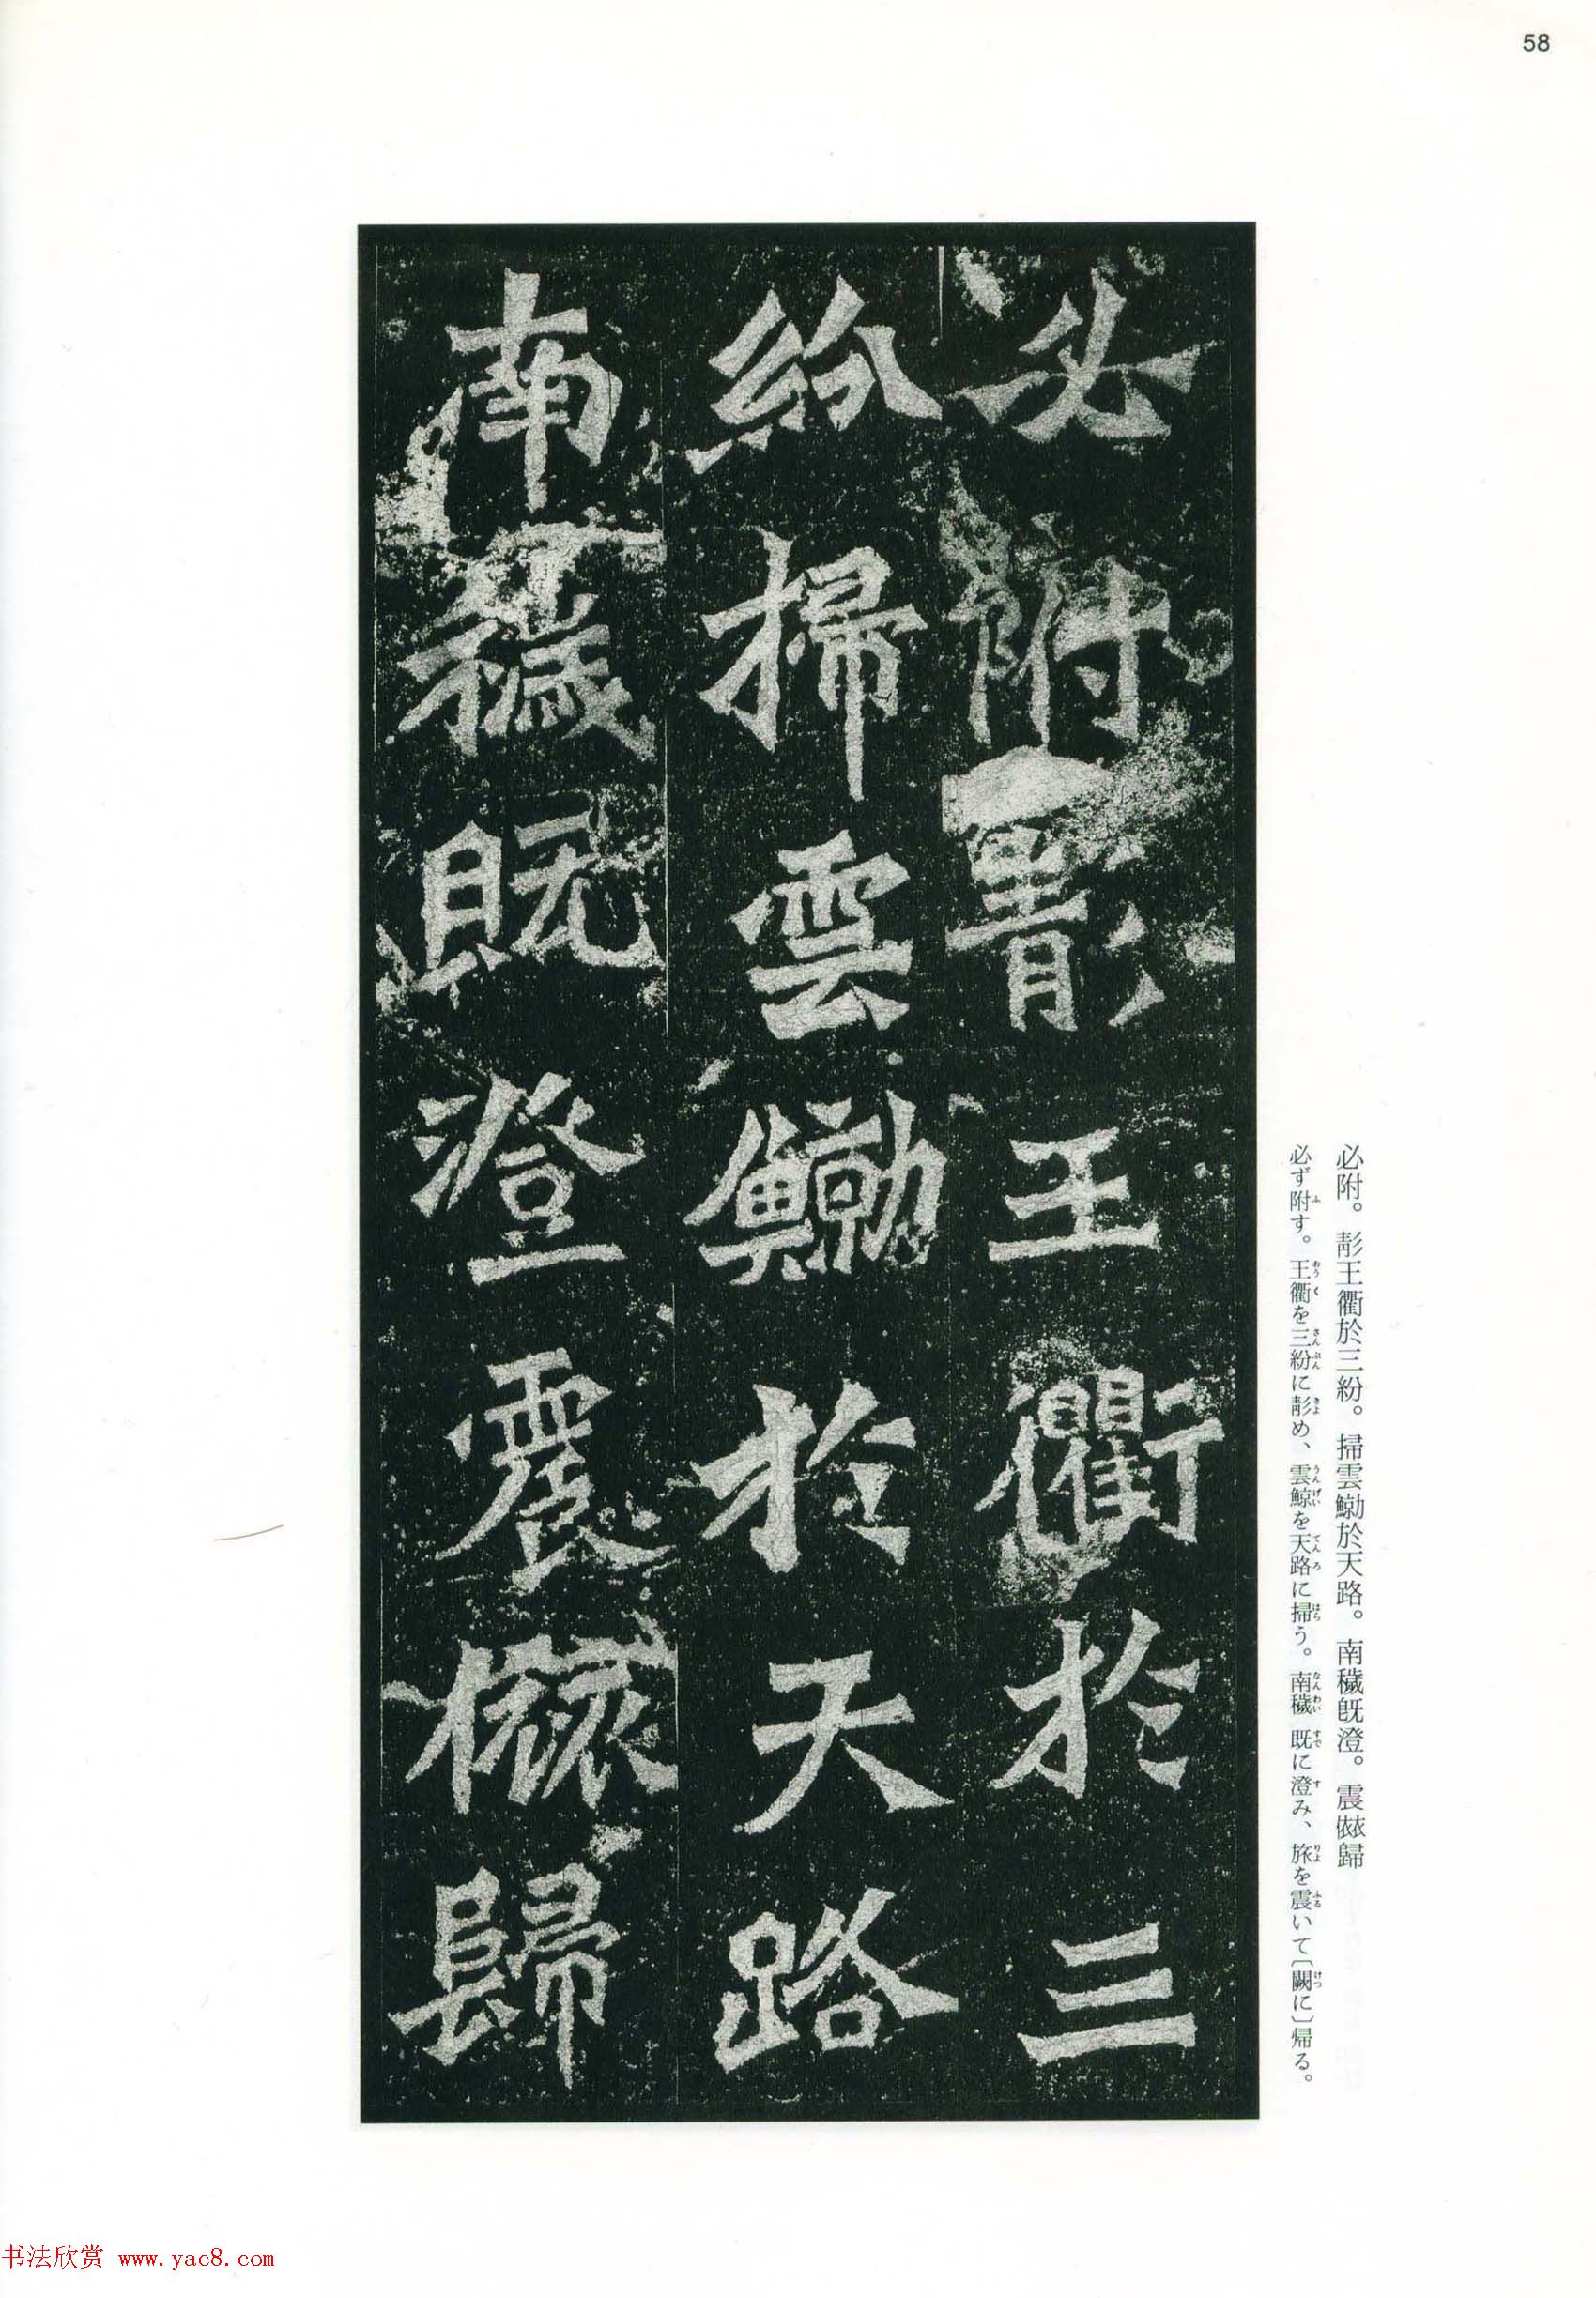 58
必附彰王衢於三
紛掃雲鯨於天路
南穢既澄震旅歸
必附。彰王衢於三紛。掃雲鯨於天路。南穢既澄。震旅歸
必ず附す。王衢を三紛に彰め、雲鯨を天路に掃う。南穢 既に澄み、旅を震いて〔闕に〕帰る。
书法欣赏 www.yac8.com